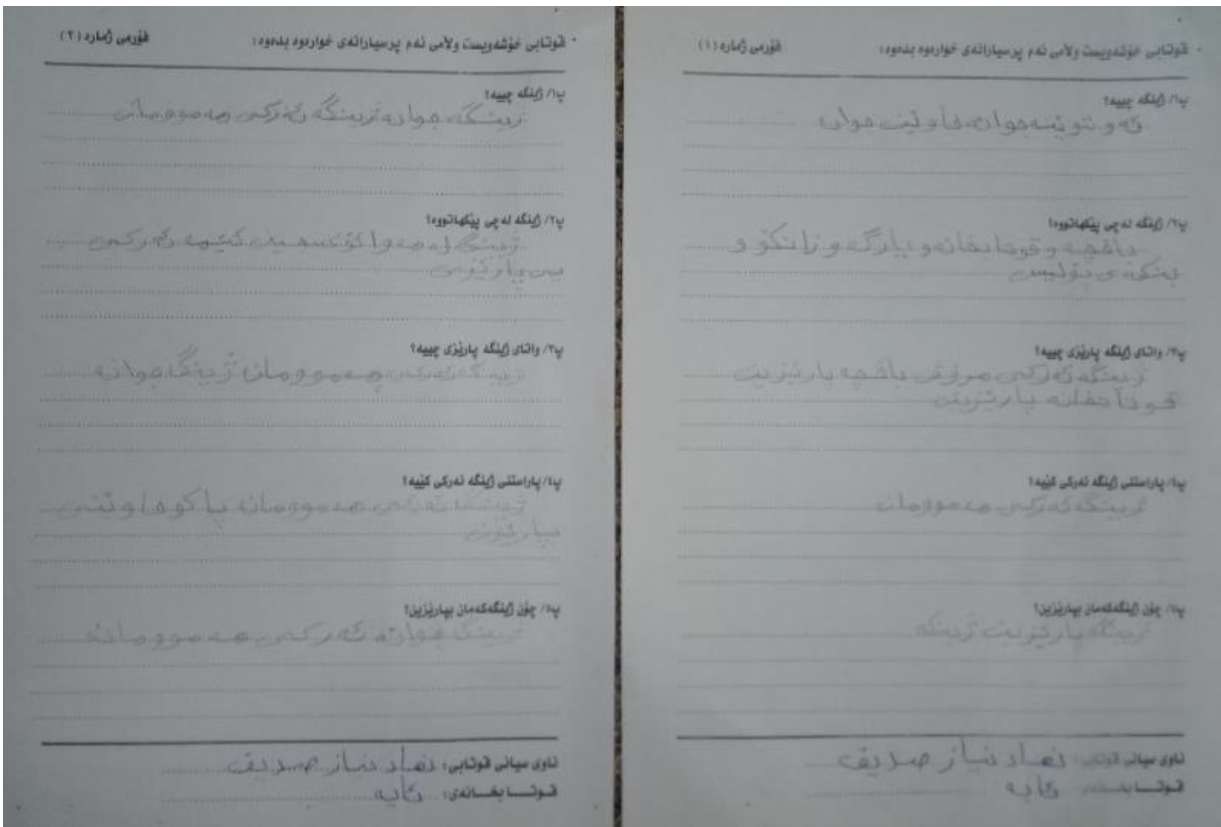 قوتابی خۆشەویست وەڵامی ئەم پرسیارانەی خوارەوە بدەوە:
فۆرمی ژمارە (١)
پ١/ ژینگە چییە؟
ئەو شوێنە جوانە خاوێن جوان
پ٢/ ژینگە لەچی پێکهاتووە؟
باخچە و قوتابخانەو پارک و زانکۆ و
بنکەی پۆلیس
پ٣/ واتای ژینگە پارێزی چییە؟
ژینگە ئەرکی مرۆڤ باخچە پارێزین
قوتابخانە پارێزین
پ٤/ پاراستنی ژینگە ئەرکی کێیە؟
ژینگە ئەرکی هەموومان
پ٥/ چۆن ژینگەکەمان بپارێزین؟
ژینگە پارێزین ژینگە
ناوی سیانی قوتابی: نهاد نیاز صدیق
قوتابخانەی: کابە
قوتابی خۆشەویست وەڵامی ئەم پرسیارانەی خوارەوە بدەوە:
فۆرمی ژمارە (٢)
پ١/ ژینگە چییە؟
ژینگە جوانە ژینگە ئەرکی هەموومان
پ٢/ ژینگە لەچی پێکهاتووە؟
ژینگە لە هەوا ئۆکسجین ئەرکی
پ٣/ واتای ژینگە پارێزی چییە؟
ژینگە ئەرکی هەموومان ژینگە جوانە
پ٤/ پاراستنی ژینگە ئەرکی کێیە؟
ژینگە ئەرکی هەموومانە پاکوخاوێنی
بپارێزین
پ٥/ چۆن ژینگەکەمان بپارێزین؟
ژینگە جوانە ئەرکی هەموومانە
ناوی سیانی قوتابی: نهاد نیاز صدیق
قوتابخانەی: کابە